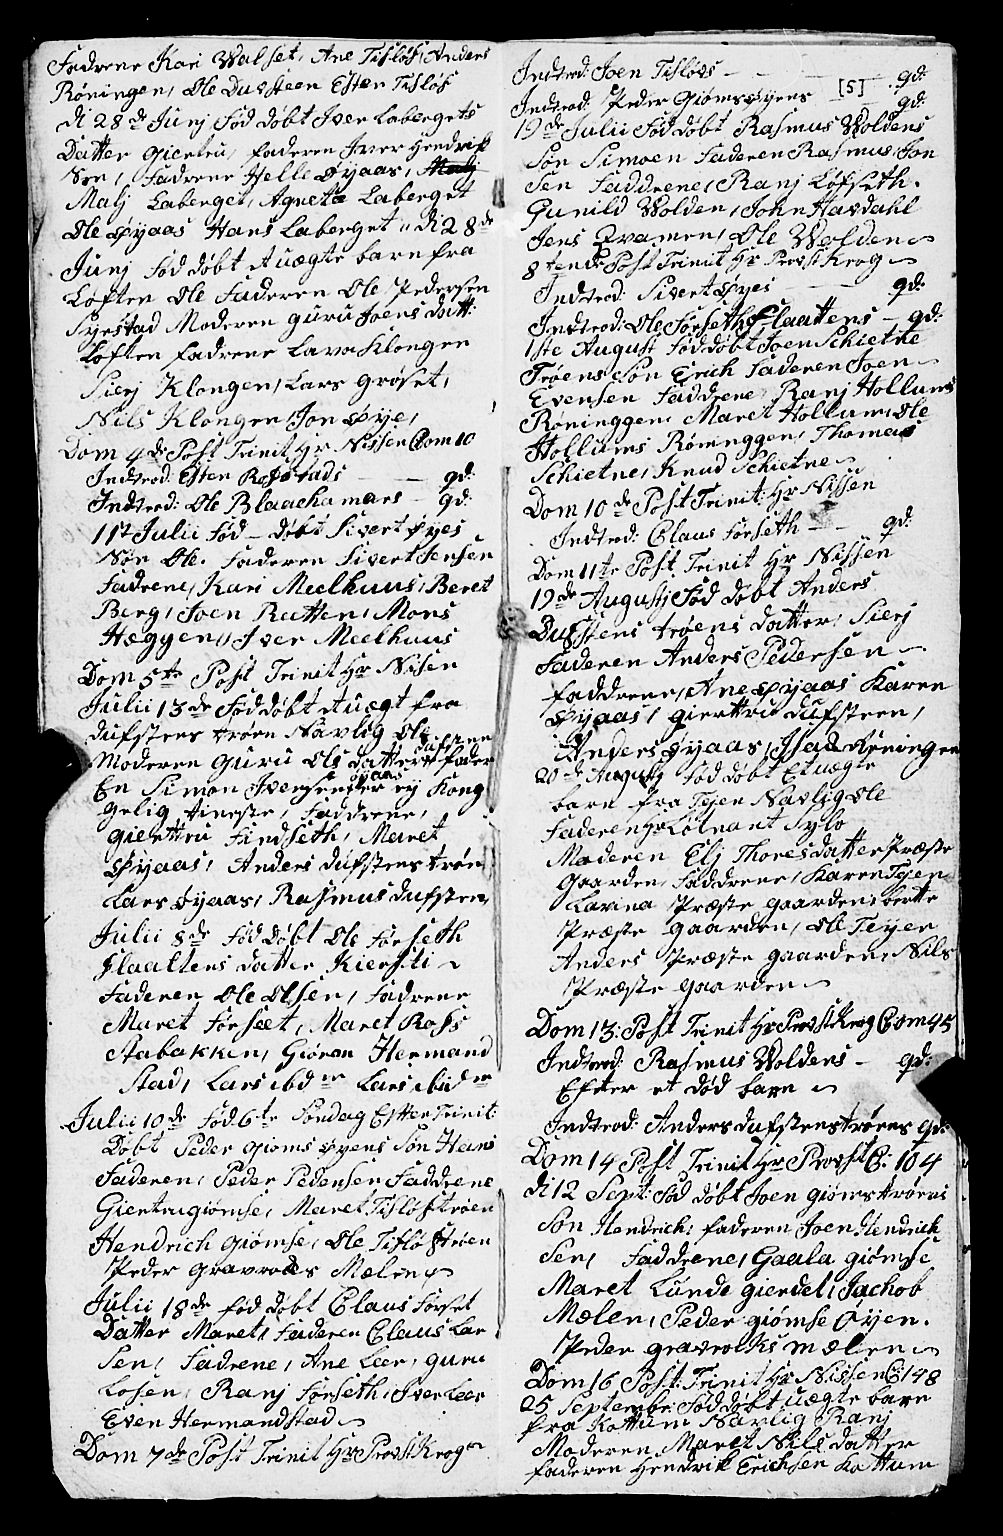 Fadrene Kari Walset, Ane Tisløf, Anders
Røningen, Ole Dusteen Esten Tisløf
di 28de Junj Fød døbt Iver Labergets
Datter Giertru, faderen Iver Hendrik
Søn, Fadrene Helle Øyaas,
Malj Laberget, Agneta Laberget
Ole Øyaas Hans Laberget, di 28de
Junj Fød døbt et uægte barn fra
Løften Ole Faderen Ole Pedersen
Syrstad Moderen guru Joens datt:
Løften fadrene Lava Klongen
Sierj Klongen, Lars Grøset,
Nils Klongen Jon Øye,
Dom 4de Post Trinit Hr Nissen C Dom 10
Indtred: Esten Rosstads — gd:
Indtred: Ole Blaachamars — gd:
11st Julii Fød — døbt Sivert Øyes
Søn Ole. Faderen Sivert Jensen
Fadrene, Kari Meelhuus, Beret
Berg, Joen Rutten, Mons
Hæggen, Iver Meelhuus
Dom 5te Post Trinit Hr Nisen
Julii 13de Fød døbt et uægt fra
dufstens trøen Navlig Ole
Moderen Guru Ols datter dufsteen fader
En Simon Iversen øyaas ey Kong
gelig tieneste, Faddrene,
giertru Findseth, Maret
Øyaas, Anders dufstens trøen
Lars Øyaas, Rasmus dufsteen,
Julii 8de Fød Døbt Ole Førseth
flaattens datter Kiersti
Faderen Ole Olsen, Fadrene
Maret Førseet, Maret Ross
stabakken, Giøran Hermand
stad, Lars ibdm Lars ibidm
Julii 10de Fød 6te Søndag Efter Trinit:
Døbt Peder gioms øyens Søn Hans
Faderen, Peder Pedersen Faddrene
Giertru giømse, Maret Tisløstrøen
Hendrich Giømse, Ole Tisløstrøen
Peder Gravraaks Mælen
Julii 18de fød døbt Claus Førset
Datter Maret, Faderen Claus Lar
Sen, Fadrene, Ane Leer, guru
Losen, Ranj Førseth, Iver Leer
Even Hermandstad
Dom 7de Post Trinit Hr Provst Krog
Indtred: Joen Tisløvs — gd:
[5]
Indtrod: Peder Giømsøyens gd:
19de Julii Fød døbt Rasmus Woldens
Søn Simoen Faderen Rasmus Jon
Sen Faddrene, Ranj Løfseth.
Gunild Wolden, John Havdahl
Jens Qvamen, Ole Wolden
8tende Post Trinit Hr Provst Krog
Indtrod: Sivert Øyes gd:
Indtrod: Ole Førseth flaattens — gd:
1ste August Fød døbt Joen Schietne
Trøens Søn Erich Faderen Joen
Evensen Faddrene Ranj Hollums
Røninggen, Maret Hollum, Ole
Hollums Røninggen, Thomas
Schietne, Knud Schietne
Dom 10de Post Trinit: Hr Nissen
Indtred: Claus Førseth — gd:
Dom 11te Post Trinit Hr Nissen
19de Augustj Fød døbt Anders
Dufstens trøens datter, Sierj
Faderen Anders Pedersen
Faddrene, Ane Øyaas Karen
Øyaas, giertru dufsteen,
Anders Øyaas, Isak Røningen
20de Augustj Fød døbt Et uægte
barn fra Tejen Navlig Ole
Faderen Hr Løtnant Sylo
Moderen Elj Thoresdatter Præste
Gaarden, Faddrene, Karen Tejen
Larina Præste gaarden, berte
Præste gaarden, Ole Tejen
Anders Præste gaarden, Nils
Præste gaarden
Dom 13: Post Trinit Hr Provst Krog Com 45
Indtred: Rasmus Woldens — gd:
Efter et død barn
Indtrod: Anders dufstenstrøens gd:
Dom 14 Post Trinit Hr Provst C: 104
di 12 Sept: Fød døbt Joen giømstrøens
Søn Hendrich, faderen Joen Hendrich
Sen, Faddrene, Gaala giømse
Maret Lunde giendet, Jachob
Mælen, Peder giømse Øyen.
Peder gravrolks mælen
Dom 16 Post: Trinit Hr Nissen C: 148
25 Septembr Fød døbt uægte barn
fra Kottum Navlig Ranj
Moderen Maret Nils datter
faderen Hendrik Erichsen Kottum